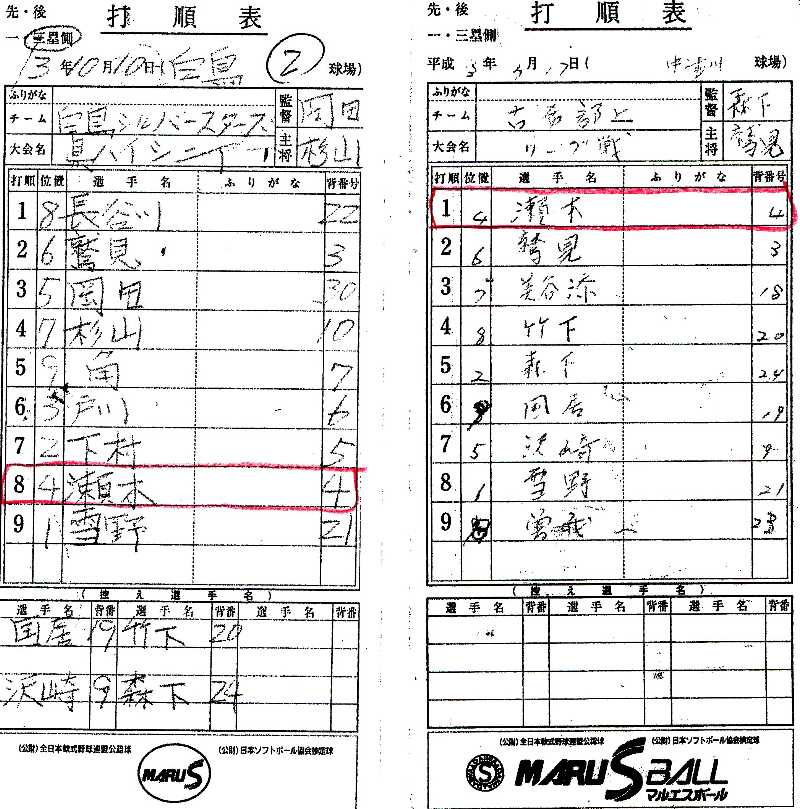 打順表
先・後
一・三塁側
13年10月10日(白鳥 球場)
②
ふりがな
チーム 白鳥シルバースターズ
大会名
監督 岡田
主将 杉山
打順 位置 選手名 ふりがな 背番号
1 8 長谷川 22
2 6 鷲見 3
3 5 岡田 30
4 7 杉山 10
5 9 角 7
6 3 戸川 6
7 2 下村 5
8 4 瀬本 4
9 1 雪野 21
(控え選手名)
選手名 背番 選手名 背番 選手名 背番
国居 19 竹下 20
浜崎 9 森下 24
(公財)全日本軟式野球連盟公認球
(公財)日本ソフトボール協会検定球
MARU S
打順表
先・後
一・三塁側
平成 年 月17日( 中津川 球場)
ふりがな
チーム
大会名 リーグ戦
監督 森下
主将 鷲見
打順 位置 選手名 ふりがな 背番号
1 4 瀬本 4
2 6 鷲見 3
3 7 美谷添 18
4 8 竹下 20
5 2 森下 24
6 国居 19
7 5 浜崎 9
8 1 雪野 21
9 曽我 23
(控え選手名)
選手名 背番 選手名 背番 選手名 背番
(公財)全日本軟式野球連盟公認球
(公財)日本ソフトボール協会検定球
MARU S BALL
マルエスボール